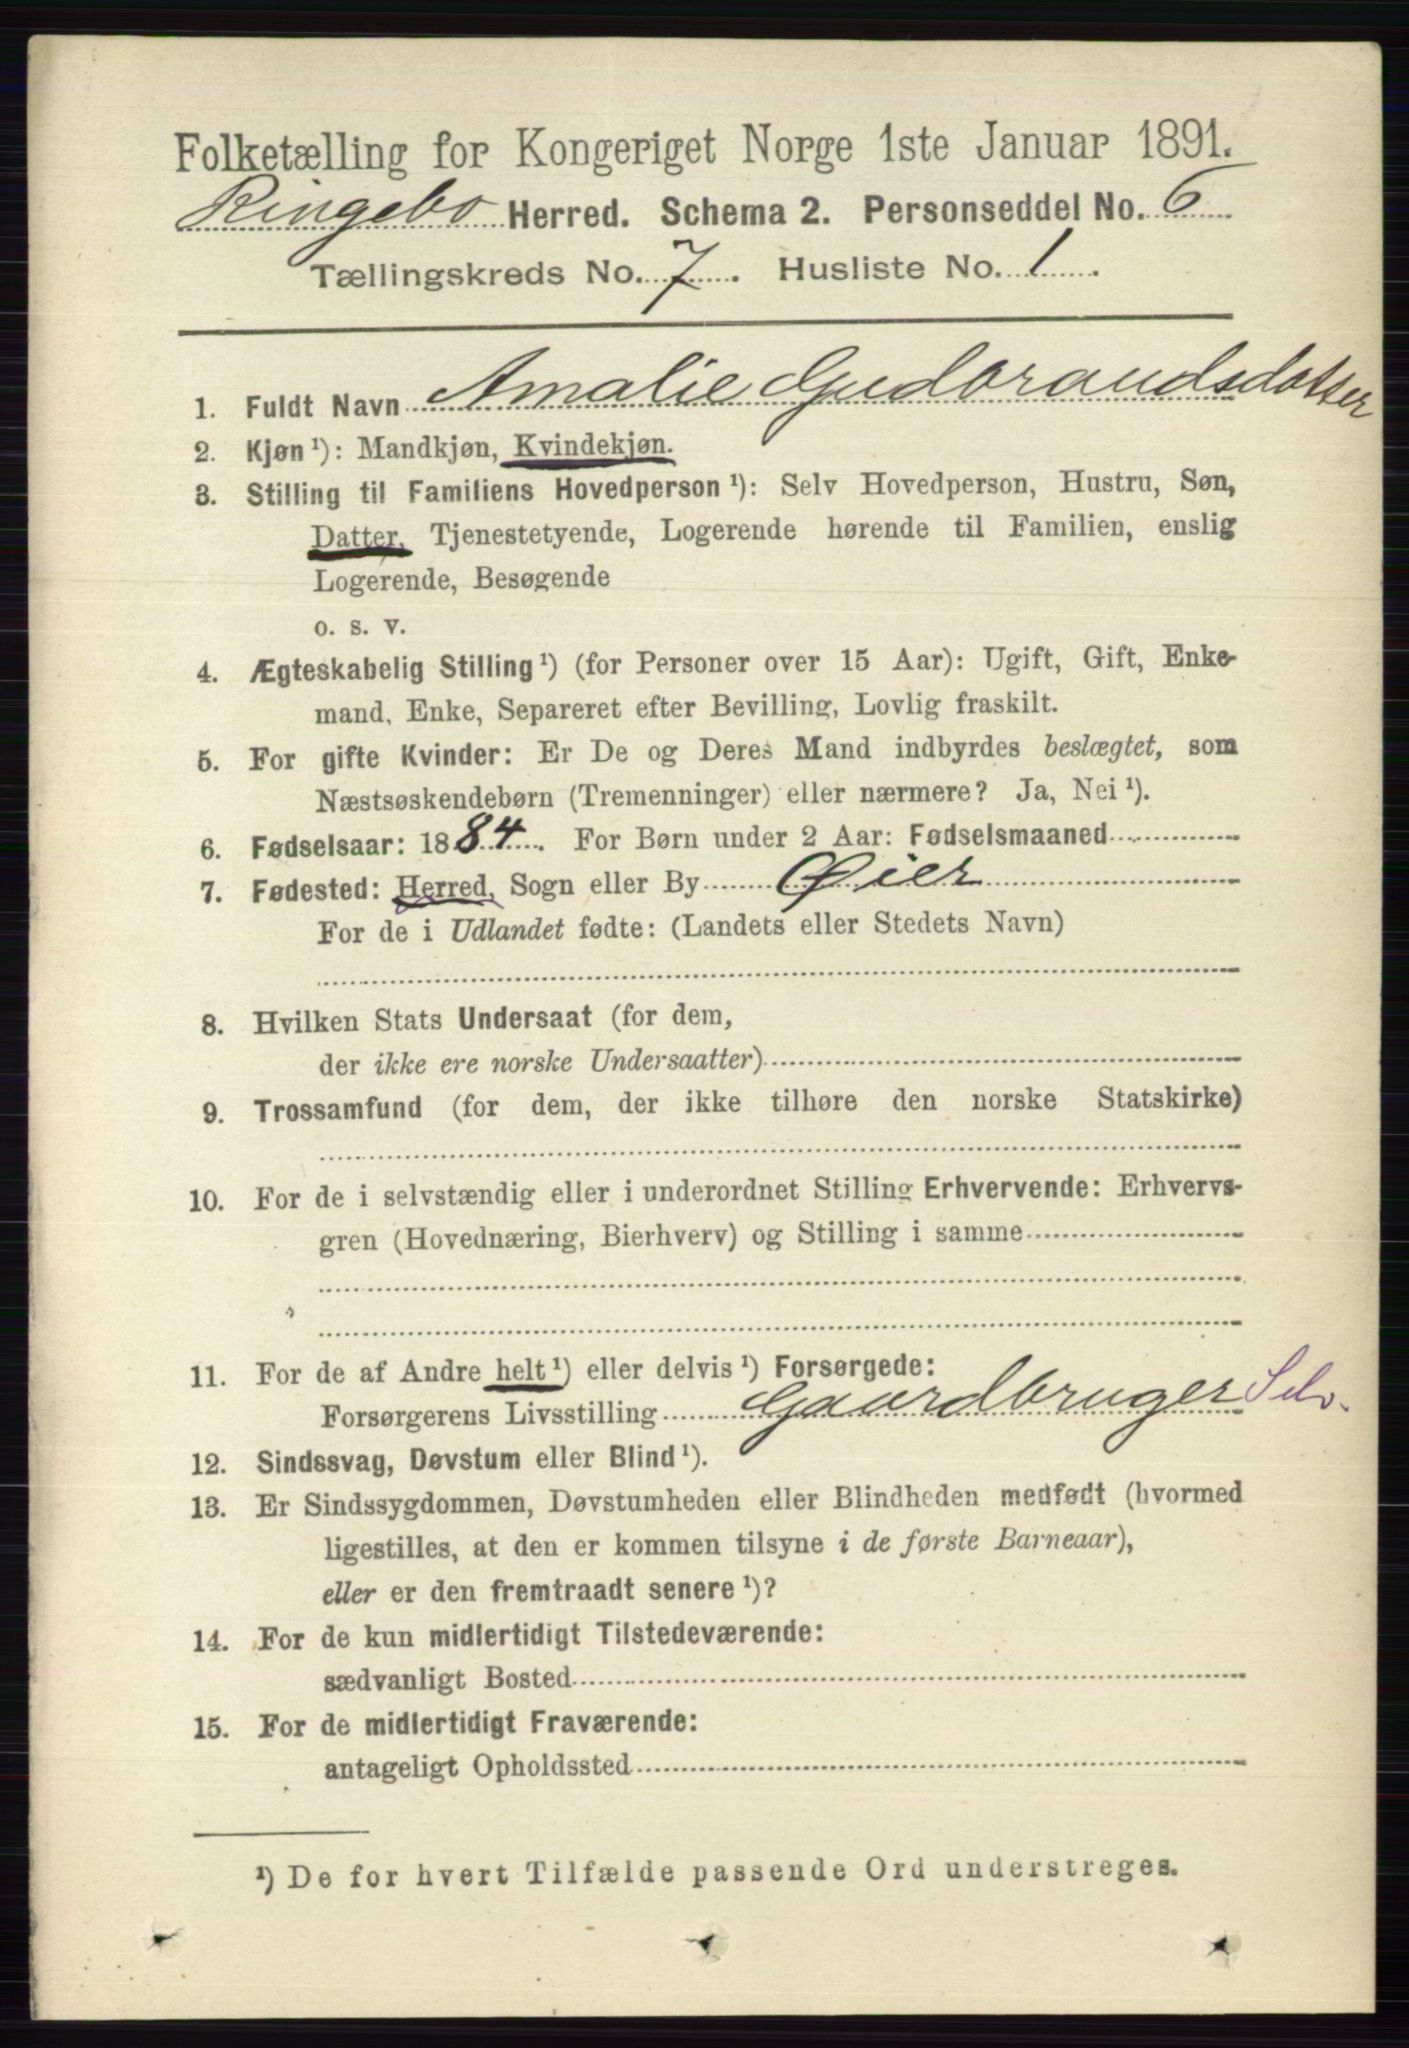 Folketælling for Kongeriget Norge 1ste Januar 1891.
Ringebo Herred. Schema 2. Personseddel No. 6
Tællingskreds No. 7. Husliste No. 1.
1. Fuldt Navn Amalie Gudbrandsdatter
2. Kjøn¹): Mandkjøn, Kvindekjøn.
3. Stilling til Familiens Hovedperson¹): Selv Hovedperson, Hustru, Søn,
Datter, Tjenestetyende, Logerende hørende til Familien, enslig
Logerende, Besøgende
o. s. v.
4. Ægteskabelig Stilling¹) (for Personer over 15 Aar): Ugift, Gift, Enke-
mand, Enke, Separeret efter Bevilling, Lovlig fraskilt.
5. For gifte Kvinder: Er De og Deres Mand indbyrdes beslægtet, som
Næstsøskendebørn (Tremenninger) eller nærmere? Ja, Nei¹).
6. Fødselsaar: 1884. For Børn under 2 Aar: Fødselsmaaned
7. Fødested: Herred, Sogn eller By Øier
For de i Udlandet fødte: (Landets eller Stedets Navn)
8. Hvilken Stats Undersaat (for dem,
der ikke ere norske Undersaatter)
9. Trossamfund (for dem, der ikke tilhøre den norske Statskirke)
10. For de i selvstændig eller i underordnet Stilling Erhvervende: Erhvervs-
gren (Hovednæring, Bierhverv) og Stilling i samme
11. For de af Andre helt¹) eller delvis¹) Forsørgede:
Forsørgerens Livsstilling Gaardbruger Selv.
12. Sindssvag, Døvstum eller Blind¹).
13. Er Sindssygdommen, Døvstumheden eller Blindheden medfødt (hvormed
ligestilles, at den er kommen tilsyne i de første Barneaar),
eller er den fremtraadt senere¹)?
14. For de kun midlertidigt Tilstedeværende:
sædvanligt Bosted
15. For de midlertidigt Fraværende:
antageligt Opholdssted
¹) De for hvert Tilfælde passende Ord understreges.